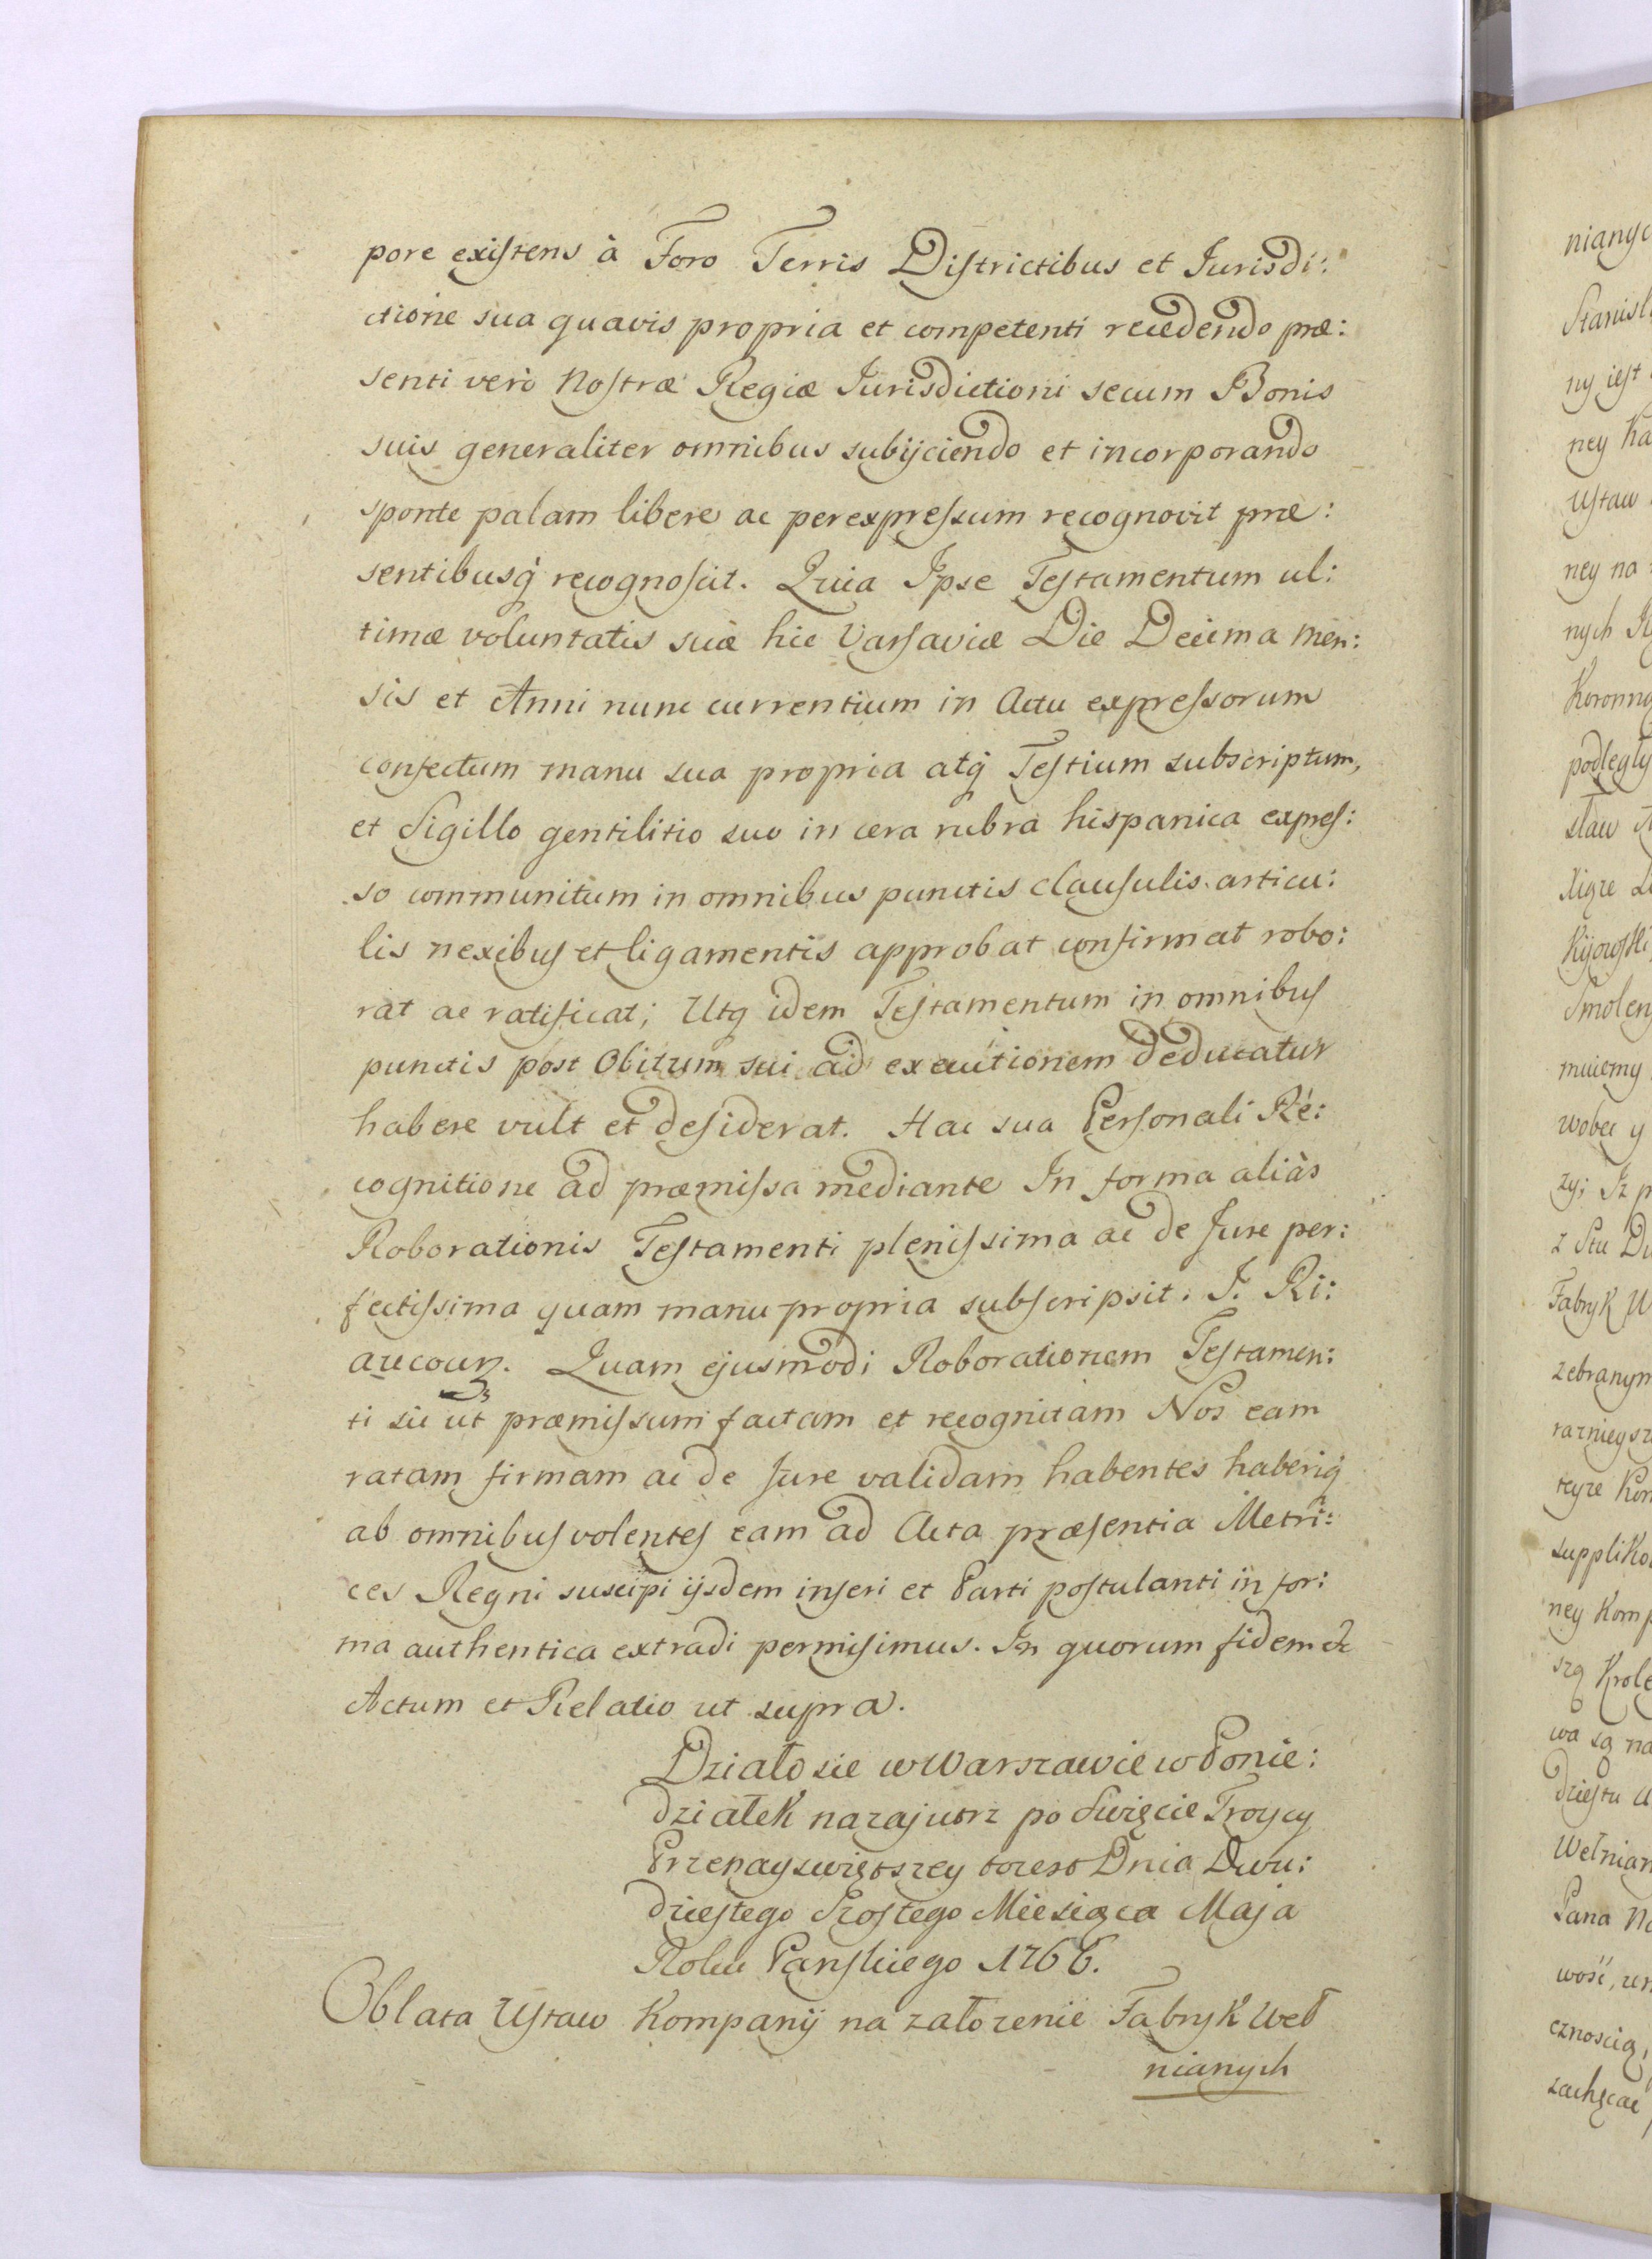 pore existens à Foro Terris Districtibus et Jurisdi:
ctione sua quavis propria et competenti recedendo præ:
senti verò Nostræ Regiæ Jurisdictioni secum Bonis
suis generaliter omnibus subijciendo et incorporando
sponte palam libere ac per expressum recognovit præ:
sentibusq recognoscit. Quia Ipse Testamentum ul:
timæ voluntatis suæ hic Varsaviæ Die Decima Men:
sis et Anni nunc currentium in Actu expressorum
confectum manu sua propria atq Testium subscriptum,
et Sigillo gentilitio suo in cera rubra hispanica expres:
so communitum in omnibus punctis clausulis articu:
lis nexibus et ligamentis approbat confirmat robo:
rat ac ratificat; Utq idem Testamentum in omnibus
punctis post Obitum sui ad executionem deducatur
habere vult et desiderat. Hac sua Personali Re:
cognitione ad præmissa mediante In forma aliàs
Roborationis Testamenti plenissima ac de Jure per:
fectissima quam manu propria subscripsit. J. Ri:
aucour. Quam ejusmodi Roborationem Testamen:
ti sic ut præmissum factam et recognitam Nos eam
ratam firmam ac de Jure validam habentes haberiq
ab omnibus volentes eam ad Acta præsentia Metri:
ces Regni suscipi ijsdem inseri et Parti postulanti in for:
ma authentica extradi permisimus. In quorum fidem &c
Actum et Relatio ut supra.
Działo sie w Warszawie w Ponie:
działek nazajutrz po Swięcie Troycy
Przenayswiętszey to iest Dnia Dwu:
dziestego Szostego Miesiąca Maja
Roku Panskiego 1766.
Oblata Ustaw Kompanij na załozenie Fabryk Weł
nianych